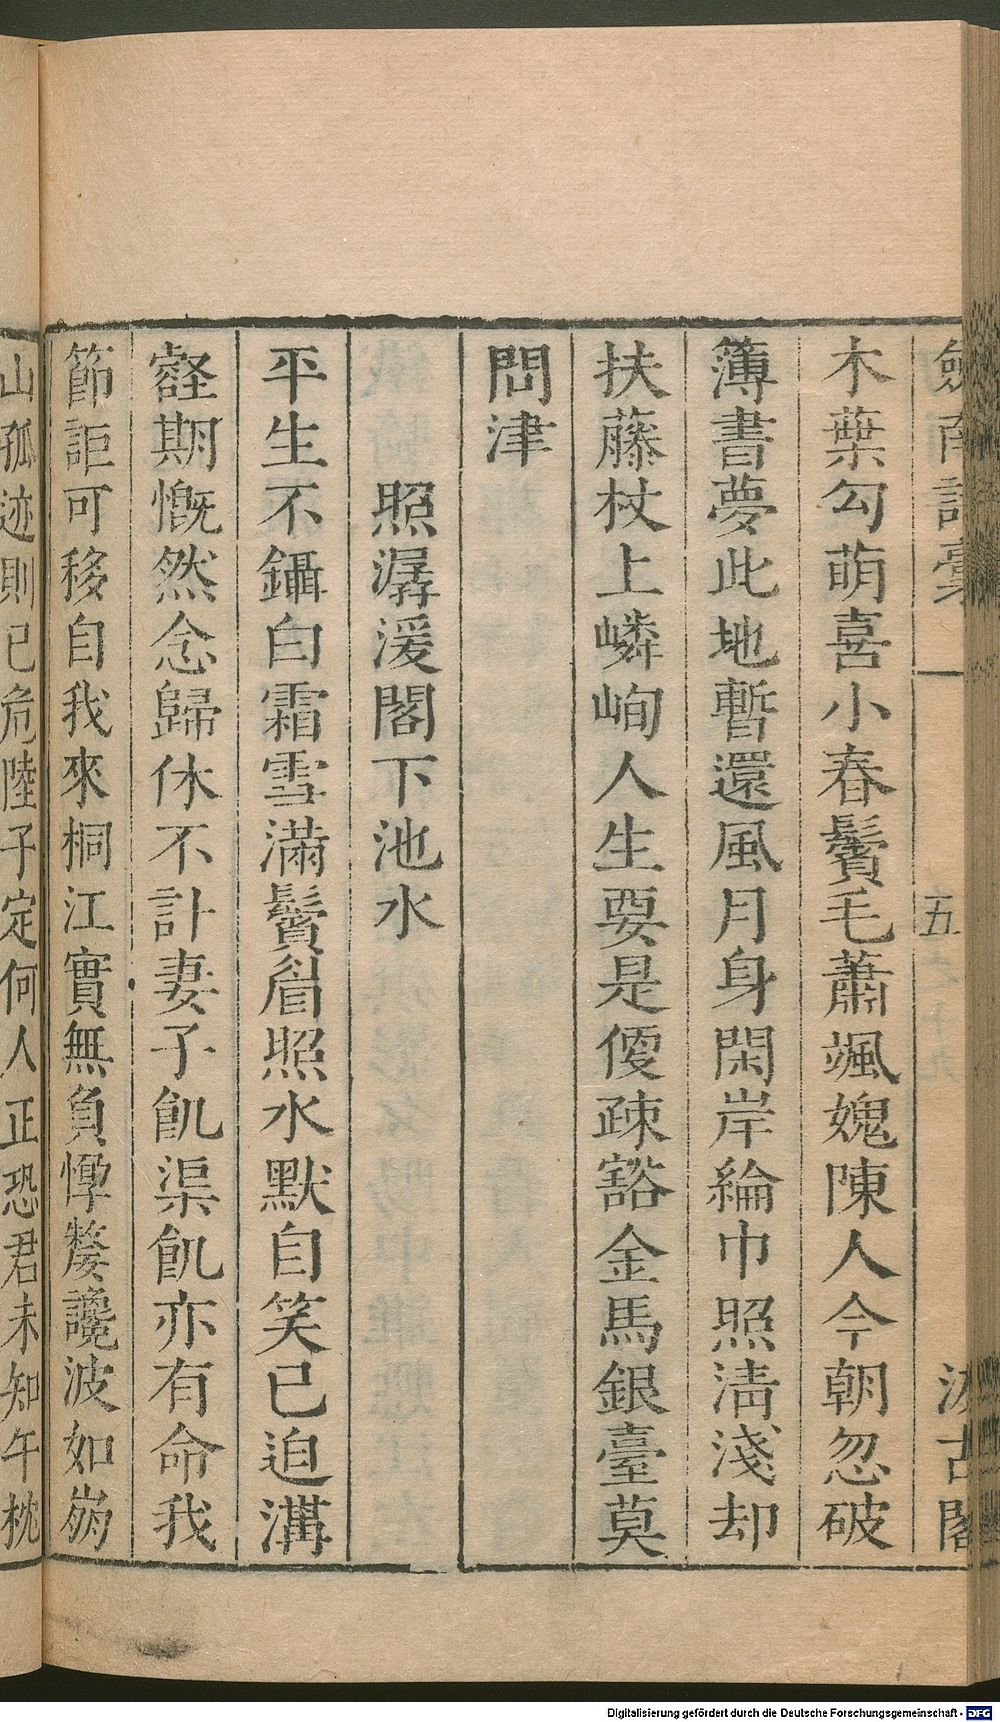 劒南詩稾
五
汲古閣
木葉勾萌喜小春鬢毛蕭颯媿陳人今朝忽破
簿書夢此地暫還風月身閑岸綸巾照淸淺却
扶藤杖上嶙峋人生要是優疎豁金馬銀臺莫
問津
照潺湲閣下池水
平生不鑷白霜雪滿鬢眉照水默自笑已迫溝
壑期慨然念歸休不計妻子飢渠飢亦有命我
節詎可移自我來桐江實無負惸嫠讒波如崩
山孤迹則已危陸子定何人正恐君未知午枕
Digitalisierung gefördert durch die Deutsche Forschungsgemeinschaft - DFG